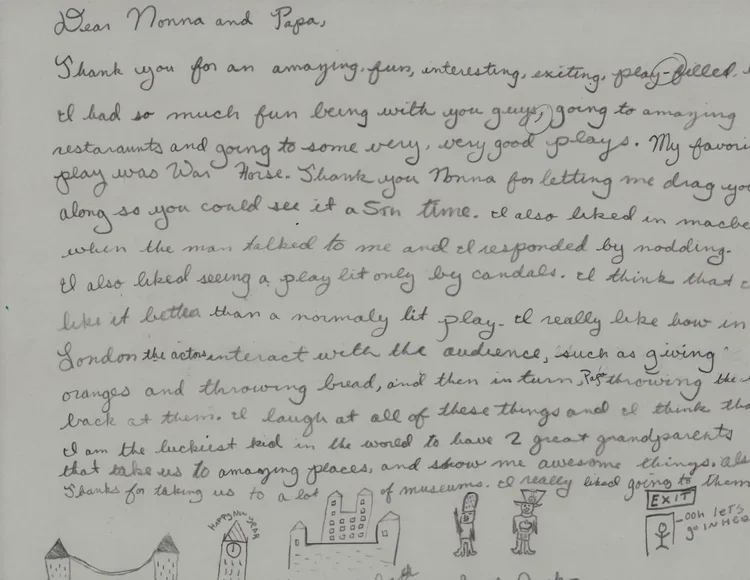 Dear Nonna and Papa,
Thank you for an amazing, fun, interesting, exiting, play-filled,
I had so much fun being with you guys, going to amazing
restaraunts and going to some very, very good plays. My favori
play was War Horse. Thank you Nonna for letting me drag you
along so you could see it a 5th time. I also liked in macbe
when the man talked to me and I responded by nodding.
I also liked seeing a play lit only by candals. I think that
like it better than a normaly lit play. I really like how in
London the actors interact with the audience, such as giving
oranges and throwing bread, and then in turn, Papa throwing the
back at them. I laugh at all of these things and I think tha
I am the luckiest kid in the world to have 2 great grandparents
that take us to amazing places, and show me awesome things. Als
Thanks for taking us to a lot of museums. I really liked going to them
HAPPY NEW YEAR
EXIT
OOH LETS
GO IN HER